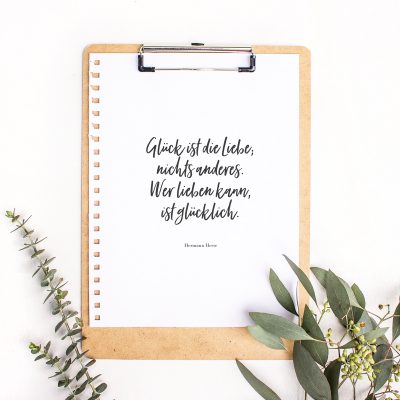 Glück ist die Liebe,
nichts anderes.
Wer lieben kann,
ist glücklich.
Hermann Hesse